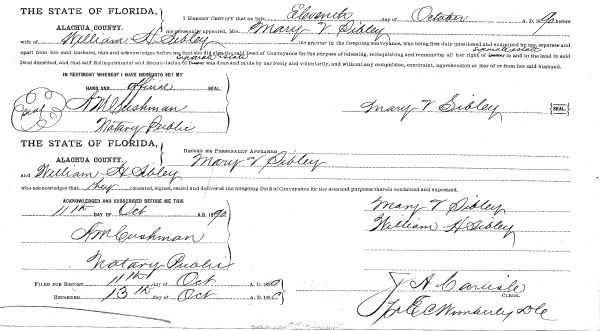 THE STATE OF FLORIDA,
ALACHUA COUNTY.
I HEREBY CERTIFY that on this Eleventh day of October A. D. 1890 before
me personally appeared, Mrs. Mary V Sibley
wife of William H. Sibley the grantor in the foregoing conveyance, who being first duly questioned and examined by me, separate and
apart from her said husband, says and acknowledges before me that she did make the said Deed of Conveyance for the purpose of releasing, relinquishing and renouncing all her right of Dower in and to the land in said
separate estate
Separate Estate
Deed described, and that said Relinquishment and Renunciation of Dower was done and made by her freely and voluntarily, and without any compulsion, constraint, apprehension or fear of or from her said husband.
IN TESTIMONY WHEREOF I HAVE HEREUNTO SET MY
HAND AND official SEAL.
Seal
A M Cushman
Notary Public
Mary V Sibley SEAL.
THE STATE OF FLORIDA,
ALACHUA COUNTY.
BEFORE ME PERSONALLY APPEARED Mary V Sibley
and William H. Sibley
who acknowledges that they executed, signed, sealed and delivered the foregoing Deed of Conveyance for the uses and purposes therein contained and expressed.
ACKNOWLEDGED AND SUBSCRIBED BEFORE ME THIS
11th DAY OF Oct A.D. 1890
Mary V Sibley
William H Sibley
A M Cushman
Notary Public
FILED FOR RECORD 11th day of Oct A. D. 1890
RECORDED 13th day of Oct A. D. 1890
J A Carlisle
CLERK.
Per E C Wimberly D C